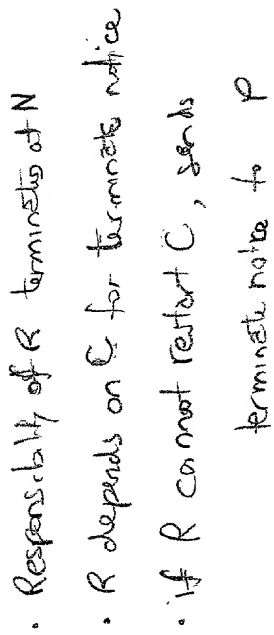 • Responsibility of R terminates at N
• R depends on C for terminate notice
• if R cannot restart C, sends
terminate notice to P